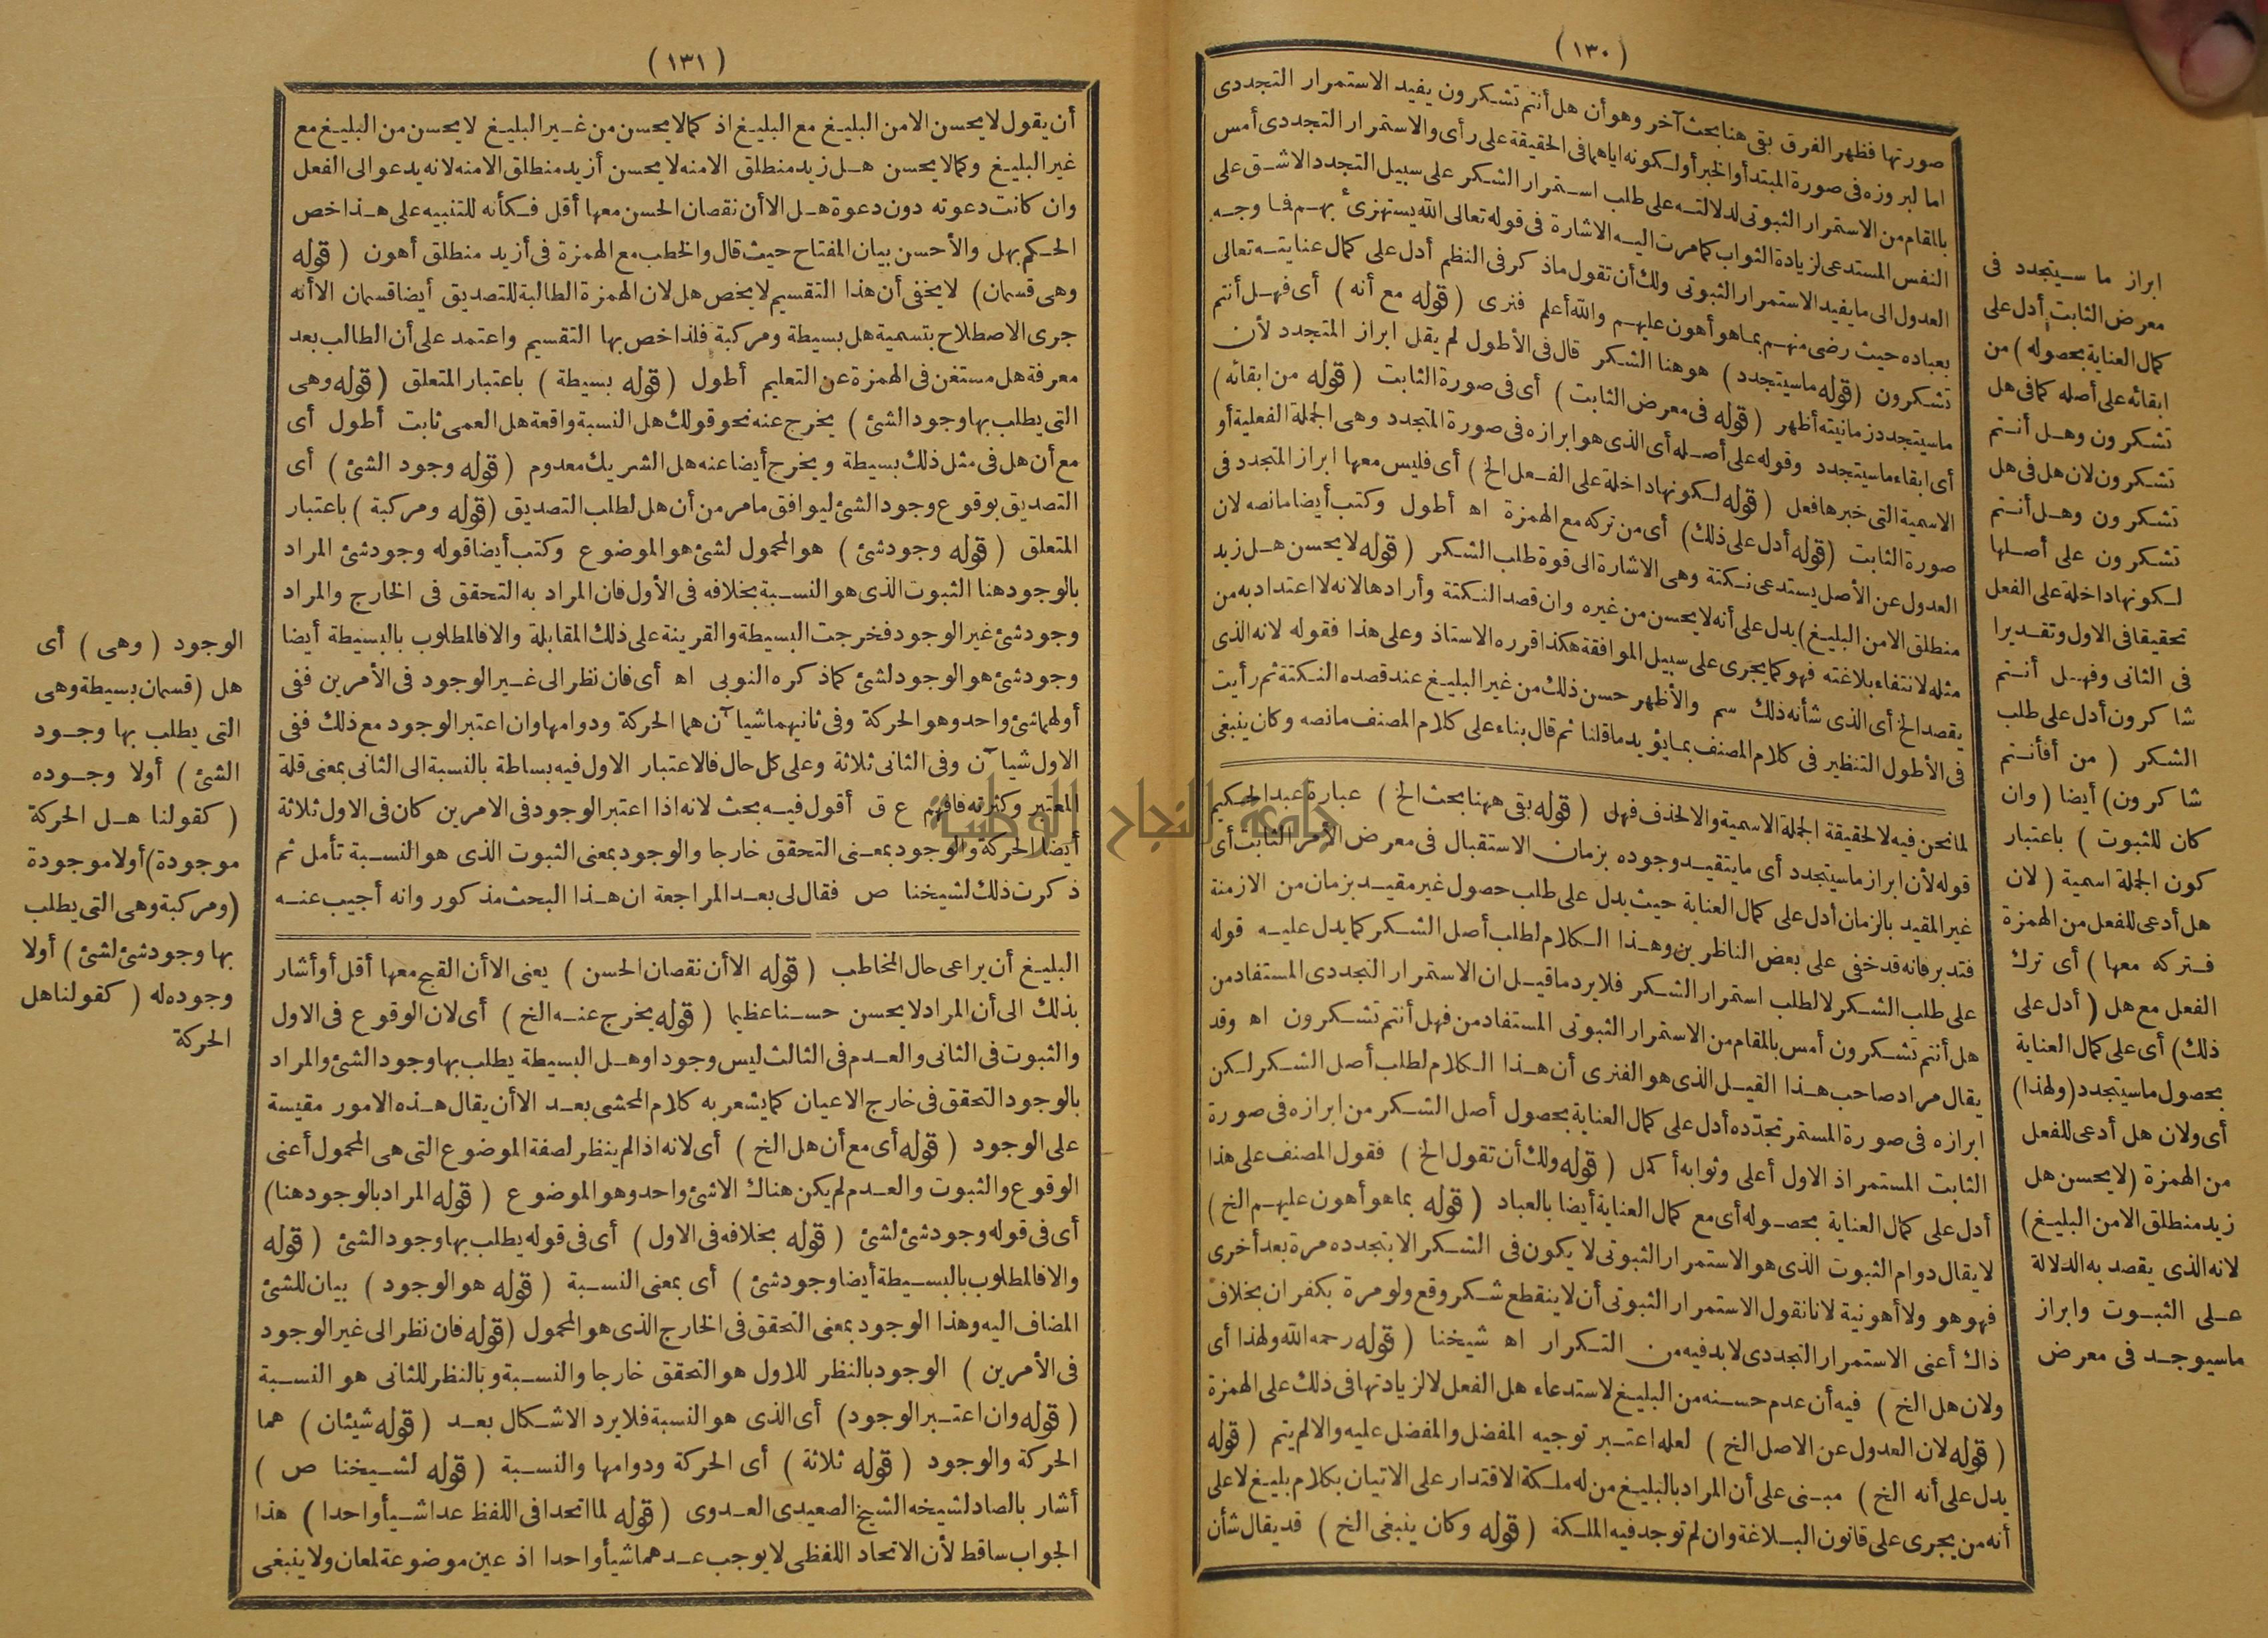 (١٣٠)
صورتها فظهر الفرق بقى هنا بحث آخر وهو أن هل أنتم تشكرون يفيد الاستمرار التجددى
اما لبروزه فى صورة المبتدأ والخبر أو لكونه اياهما فى الحقيقة على رأى والاستمرار التجددى أمس
بالمقام من الاستمرار الثبوتى لدلالته على طلب استمرار الشكر على سبيل التجدد الاشق على
النفس المستدعى لزيادة الثواب كما مرت اليه الاشارة فى قوله تعالى الله يستهزئ بهم فما وجه
العدول الى ما يفيد الاستمرار الثبوتى ولك أن تقول ماذكر فى النظم أدل على كمال عنايته تعالى
بعباده حيث رضى منهم بما هو أهون عليهم والله أعلم فنرى (قوله مع أنه) أى فهل أنتم
تشكرون (قوله ماسيتجدد) هو هنا الشكر قال فى الأطول لم يقل ابراز المتجدد لأن
ماسيتجدد زمانيته أظهر (قوله فى معرض الثابت) أى فى صورة الثابت (قوله من ابقائه)
أى ابقاء ماسيتجدد وقوله على أصله أى الذى هو ابرازه فى صورة المتجدد وهى الجملة الفعلية أو
الاسمية التى خبرها فعل (قوله لكونها داخلة على الفعل الخ) أى فليس معها ابراز المتجدد فى
صورة الثابت (قوله أدل على ذلك) أى من تركه مع الهمزة اه أطول وكتب أيضا مانصه لان
العدول عن الأصل يستدعى نكتة وهى الاشارة الى قوة طلب الشكر (قوله لا يحسن هل زيد
منطلق الا من البليغ) يدل على أنه لا يحسن من غيره وان قصد النكتة وأرادها لانه لا اعتداد به من
مثله لانتفاء بلاغته فهو كما يجرى على سبيل الموافقة هكذا قرره الاستاذ وعلى هذا فقوله لانه الذى
يقصد الخ أى الذى شأنه ذلك سم والأظهر حسن ذلك من غير البليغ عند قصده النكتة ثم رأيت
فى الأطول التنظير فى كلام المصنف بما يؤيد ماقلنا ثم قال بناء على كلام المصنف مانصه وكان ينبغى
لما نحن فيه لا لحقيقة الجملة الاسمية والا لحذف فهل (قوله بقى ههنا بحث الخ) عبارة عبد الحكيم
قوله لأن ابراز ماسيتجدد أى ما يتقيد وجوده بزمان الاستقبال فى معرض الأمر الثابت أى
غير المقيد بالزمان أدل على كمال العناية حيث يدل على طلب حصول غير مقيد بزمان من الازمنة
فتدبر فانه قد خفى على بعض الناظرين وهذا الكلام لطلب أصل الشكر كما يدل عليه قوله
على طلب الشكر لا لطلب استمرار الشكر فلا يرد ماقيل ان الاستمرار التجددى المستفاد من
هل أنتم تشكرون أمس بالمقام من الاستمرار الثبوتى المستفاد من فهل أنتم تشكرون اه وقد
يقال مراد صاحب هذا القيل الذى هو الفنرى أن هذا الكلام لطلب أصل الشكر لكن
ابرازه فى صورة المستمر تجدّده أدل على كمال العناية بحصول أصل الشكر من ابرازه فى صورة
الثابت المستمر اذ الاول أعلى وثوابه أكمل (قوله ولك أن تقول الخ) فقول المصنف على هذا
أدل على كمال العناية بحصوله أى مع كمال العناية أيضا بالعباد (قوله بما هو أهون عليهم الخ)
لا يقال دوام الثبوت الذى هو الاستمرار الثبوتى لا يكون فى الشكر الا بتجدده مرة بعد أخرى
فهو هو ولا أهونية لانا نقول الاستمرار الثبوتى أن لا ينقطع شكر وقع ولو مرة بكفران بخلاف
ذاك أعنى الاستمرار التجددى لابد فيه من التكرار اه شيخنا (قوله رحمه الله ولهذا أى
ولان هل الخ) فيه أن عدم حسنه من البليغ لاستدعاء هل الفعل لا لزيادتها فى ذلك على الهمزة
(قوله لان العدول عن الاصل الخ) لعله اعتبر توجيه المفضل والمفضل عليه والا لم يتم (قوله
يدل على أنه الخ) مبنى على أن المراد بالبليغ من له ملكة الاقتدار على الاتيان بكلام بليغ لا على
أنه من يجرى على قانون البلاغة وان لم توجد فيه الملكة (قوله وكان ينبغى الخ) قد يقال شأن
ابراز ما سيتجدد فى
معرض الثابت أدل على
كمال العناية بحصوله) من
ابقائه على أصله كما فى هل
تشكرون وهل أنتم
تشكرون لان هل فى هل
تشكرون وهل أنتم
تشكرون على أصلها
لكونها داخلة على الفعل
تحقيقا فى الاول وتقديرا
فى الثانى وفهل أنتم
شاكرون أدل على طلب
الشكر (من أفأنتم
شاكرون) أيضا (وان
كان للثبوت) باعتبار
كون الجملة اسمية (لان
هل أدعى للفعل من الهمزة
فتركه معها) أى ترك
الفعل مع هل (أدل على
ذلك) أى على كمال العناية
بحصول ماسيتجدد (ولهذا)
أى ولان هل أدعى للفعل
من الهمزة (لا يحسن هل
زيد منطلق الا من البليغ)
لانه الذى يقصد به الدلالة
على الثبوت وابراز
ماسيوجد فى معرض
(١٣١)
أن يقول لا يحسن الا من البليغ مع البليغ اذ كما لا يحسن من غير البليغ لا يحسن من البليغ مع
غير البليغ وكما لا يحسن هل زيد منطلق الا منه لا يحسن أزيد منطلق الا منه لانه يدعو الى الفعل
وان كانت دعوته دون دعوة هل الا أن نقصان الحسن معها أقل فكأنه للتنبيه على هذا خص
الحكم بهل والأحسن بيان المفتاح حيث قال والخطب مع الهمزة فى أزيد منطلق أهون (قوله
وهى قسمان) لا يخفى أن هذا التقسيم لا يخص هل لان الهمزة الطالبة للتصديق أيضا قسمان الا أنه
جرى الاصطلاح بتسمية هل بسيطة ومركبة فلذا خص بها التقسيم واعتمد على أن الطالب بعد
معرفة هل مستغن فى الهمزة عن التعليم أطول (قوله بسيطة) باعتبار المتعلق (قوله وهى
التى يطلب بها وجود الشئ) يخرج عنه نحو قولك هل النسبة واقعة هل العمى ثابت أطول أى
مع أن هل فى مثل ذلك بسيطة ويخرج أيضا عنه هل الشريك معدوم (قوله وجود الشئ) أى
التصديق بوقوع وجود الشئ ليوافق مامر من أن هل لطلب التصديق (قوله ومركبة) باعتبار
المتعلق (قوله وجود شئ) هو المحمول لشئ هو الموضوع وكتب أيضا قوله وجود شئ المراد
بالوجود هنا الثبوت الذى هو النسبة بخلافه فى الأول فان المراد به التحقق فى الخارج والمراد
وجود شئ غير الوجود فخرجت البسيطة والقرينة على ذلك المقابلة والا فالمطلوب بالبسيطة أيضا
وجود شئ هو الوجود لشئ كما ذكره النوبى اه أى فان نظر الى غير الوجود فى الأمرين ففى
أولهما شئ واحد وهو الحركة وفى ثانيهما شيآن هما الحركة ودوامها وان اعتبر الوجود مع ذلك ففى
الاول شيآن وفى الثانى ثلاثة وعلى كل حال فالاعتبار الاول فيه بساطة بالنسبة الى الثانى بمعنى قلة
المعتبر وكثرته فافهم ع ق أقول فيه بحث لانه اذا اعتبر الوجود فى الامرين كان فى الاول ثلاثة
أيضا الحركة والوجود بمعنى التحقق خارجا والوجود بمعنى الثبوت الذى هو النسبة تأمل ثم
ذكرت ذلك لشيخنا ص فقال لى بعد المراجعة ان هذا البحث مذكور وانه أجيب عنه
البليغ أن يراعى حال المخاطب (قوله الا أن نقصان الحسن) يعنى الا أن القبح معها أقل أو أشار
بذلك الى أن المراد لا يحسن حسنا عظيما (قوله يخرج عنه الخ) أى لان الوقوع فى الاول
والثبوت فى الثانى والعدم فى الثالث ليس وجودا وهل البسيطة يطلب بها وجود الشئ والمراد
بالوجود التحقق فى خارج الاعيان كما يشعر به كلام المحشى بعد الا أن يقال هذه الامور مقيسة
على الوجود (قوله أى مع أن هل الخ) أى لانه اذا لم ينظر لصفة الموضوع التى هى المحمول أعنى
الوقوع والثبوت والعدم لم يكن هناك الا شئ واحد وهو الموضوع (قوله المراد بالوجود هنا)
أى فى قوله وجود شئ لشئ (قوله بخلافه فى الاول) أى فى قوله يطلب بها وجود الشئ (قوله
والا فالمطلوب بالبسيطة أيضا وجود شئ) أى بمعنى النسبة (قوله هو الوجود) بيان للشئ
المضاف اليه وهذا الوجود بمعنى التحقق فى الخارج الذى هو المحمول (قوله فان نظر الى غير الوجود
فى الأمرين) الوجود بالنظر للاول هو التحقق خارجا والنسبة وبالنظر للثانى هو النسبة
(قوله وان اعتبر الوجود) أى الذى هو النسبة فلا يرد الاشكال بعد (قوله شيئان) هما
الحركة والوجود (قوله ثلاثة) أى الحركة ودوامها والنسبة (قوله لشيخنا ص)
أشار بالصاد لشيخه الشيخ الصعيدى العدوى (قوله لما اتحدا فى اللفظ عدا شيأ واحدا) هذا
الجواب ساقط لأن الاتحاد اللفظى لا يوجب عدهما شيأ واحدا اذ عين موضوعة لمعان ولا ينبغى
الوجود (وهى) أى
هل (قسمان بسيطة وهى
التى يطلب بها وجود
الشئ) أولا وجوده
(كقولنا هل الحركة
موجودة) أولا موجودة
(ومركبة وهى التى يطلب
بها وجود شئ لشئ) أولا
وجوده له (كقولنا هل
الحركة
جامعة النجاح الوطنية